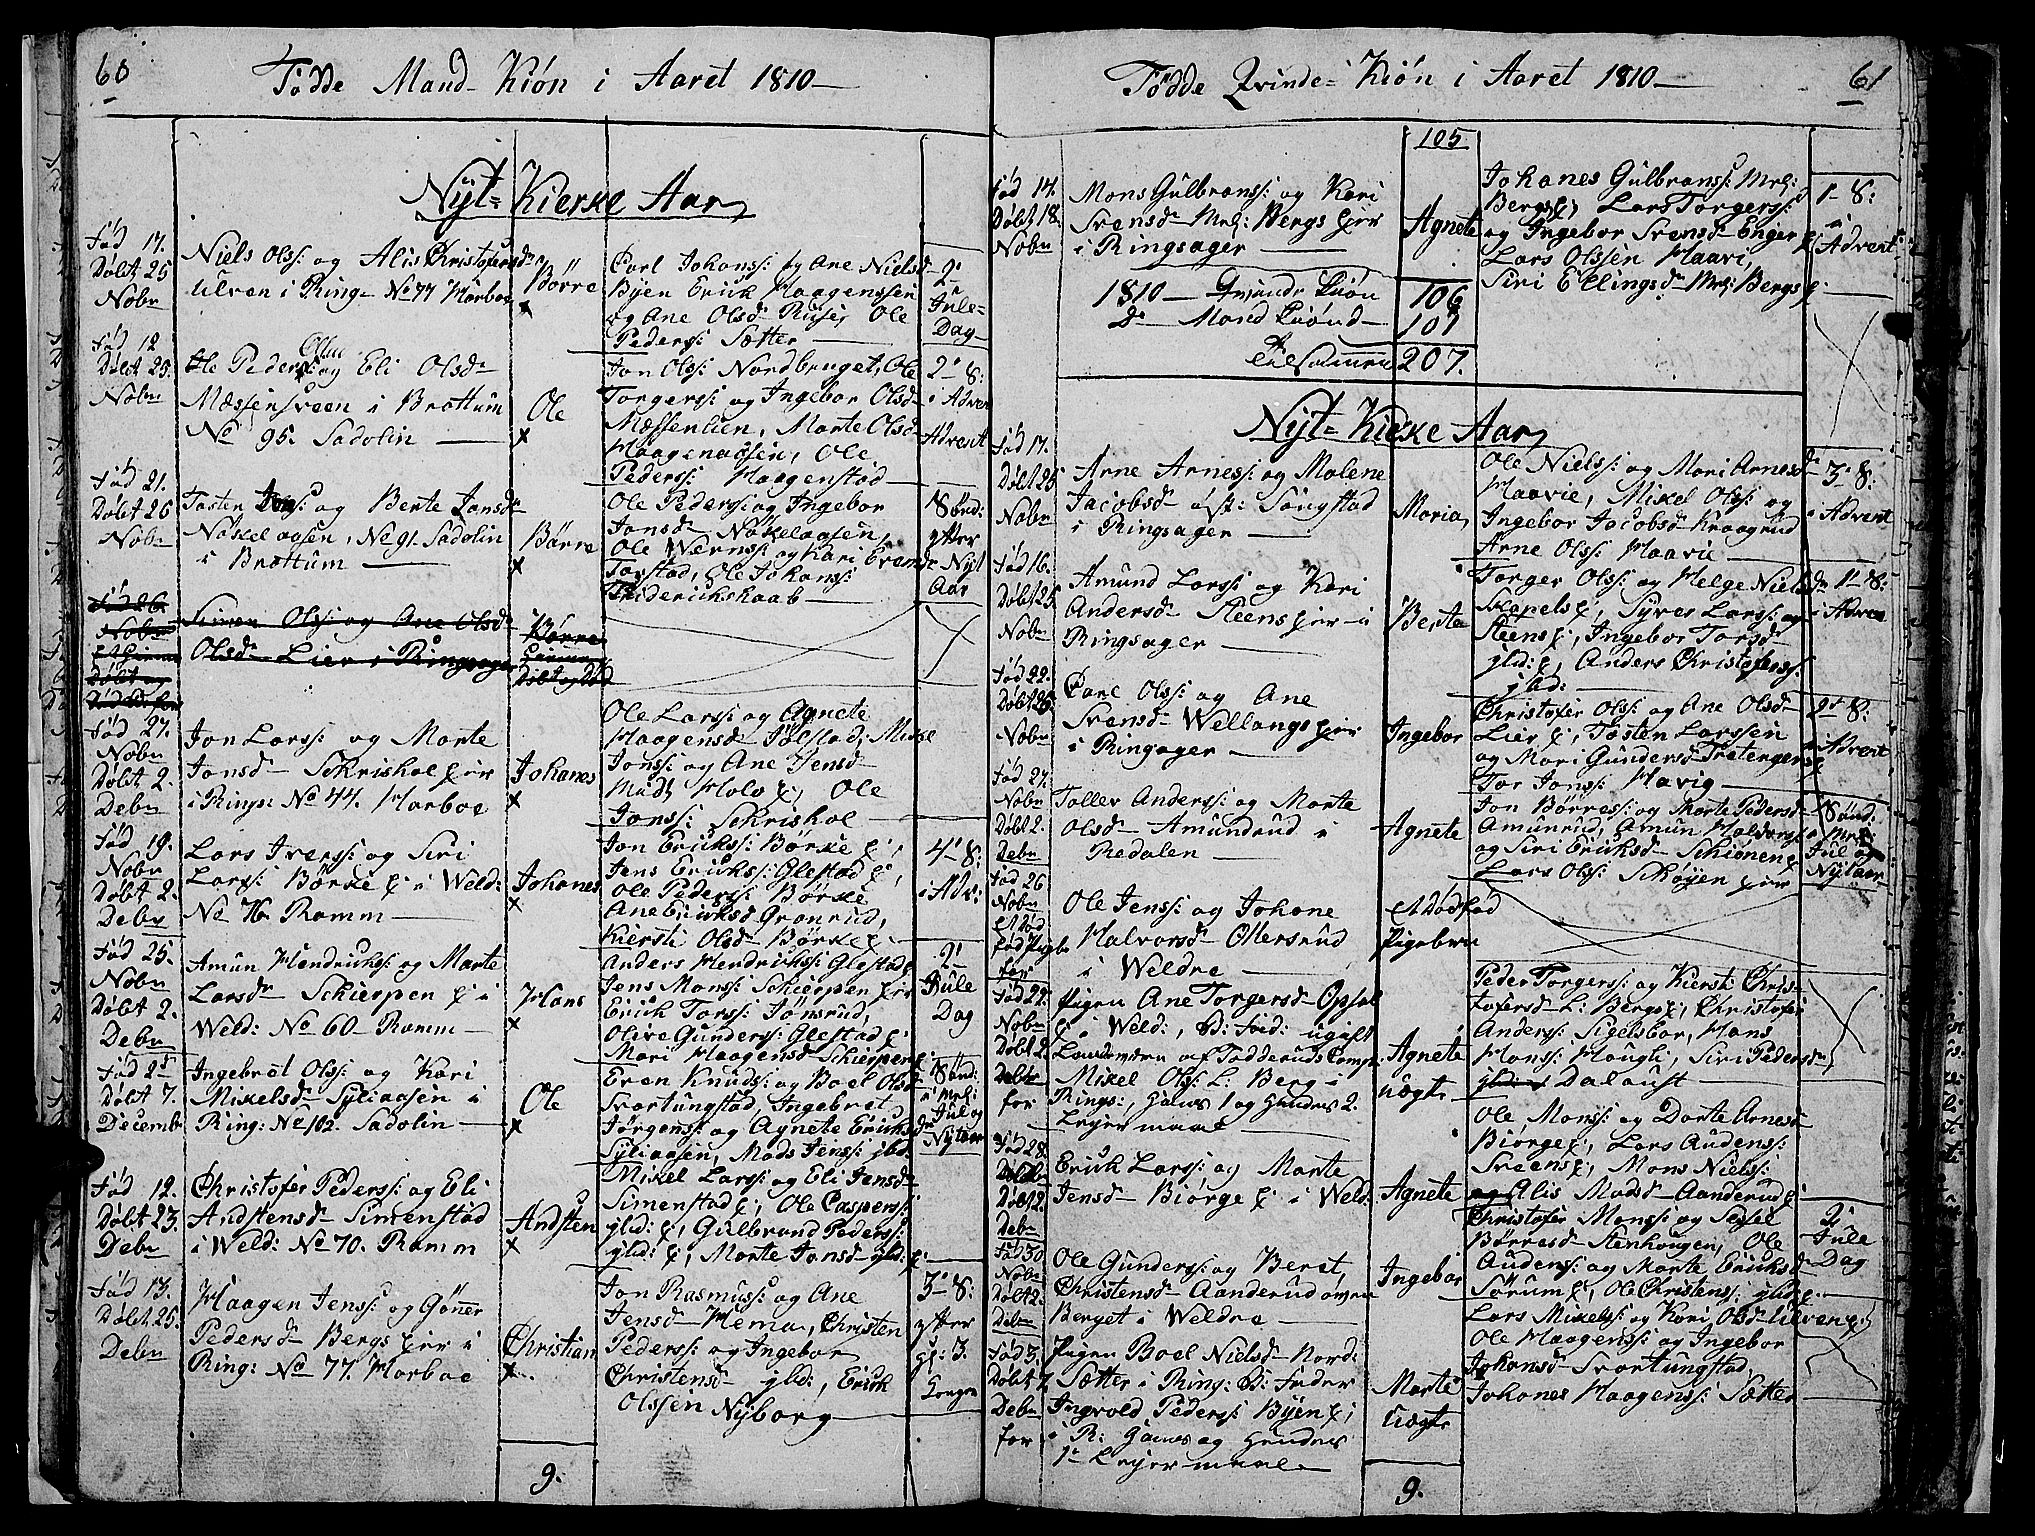 60
Födde Mand-Kiön i Aaret 1810
Nyt-Kierke Aar
Föd 17.
Döbt 25
Nobr
Niels Olss: og Alis Christofersd
Ulven i Ring- No 77 Harboe
Börre
x
Carl Johanss: og Ane Nielsd
Byen Erick Haagenssen
og Ane Olsd Ruse, Ole
Pederss: Sætter
2'
Jule-
Dag
Föd 12
Döbt 25.
Nobr
Ole Pederss: og Eli Olsd
Mæssensveen i Brøttum
No 95. Sadolin
Ole
x
Jon Olss: Nordbruget, Ole
Torgerss: og Ingebor Olsd
Mæssenlien, Marte Olsd
Haagenaasen, Ole
Pederss: Haagenstad
2' S:
i Advent
Advent
Föd 21.
Döbt 26
Nobr
Tosten Jonss: og Berte Jonsd
Nökelaasen, No 91. Sadolin
i Brøttum
Börre
x
Ole Pederss: og Ingebor
Jonsd Nökelaasen,
Ole Wernss: og Kari Evensd
Torstad, Ole Johanss:
Friderickskaab
Sönd:
efter
Nyt
Aar
Föd 26.
Nobr
Simen Olss: og Ane Olsd
Olsd Lier i Ringsager
Börre
Döbt og död
Föd 27.
Nobr
Döbt 2.
Debr
Jon Larss: og Marte
Jonsd Skriskol eier
i Rings: No 44. Harboe
Johanes
x
Ole Larss: og Agnete
Haagensd Jölstad, Mikel
Jonss: og Ane Jensd
Ole
Jonss: Skriskol
Föd 19.
Nobr
Döbt 2.
Debr
Lars Iverss: og Siri
Larss: Börke i Weld:
No 76 Ramm
Johanes
x
Jon Erickss: Börke
Jens Erickss: Glestad
Ole Pederss: Börke
Ane Ericksd Grönrud,
Kiersti Olsd Börke
4' S:
i Adv:
Föd 25.
Nobr
Döbt 2.
Debr
Amun Hendrickss: og Marte
Larsd Schierpen i
Weld: No 60 Ramm
Hans
x
Anders Hendrickss: Glestad
Jens Monss: Schierpen eier
Erick Torss: Jönsrud,
Olive Gunderss: Glestad
Mari Haagensd Schierpen
2'
Jule
Dag
Döbt 7.
Decembr
Ingebrot Olss: og Kari
Mikelsd Syliaasen i
Ring: No 102. Sadolin
Ole
x
Even Knudss: og Boel Olsd
Svartungstad, Ingebret
Jörgenss: og Agnete Ericksd
Syliaasen, Mads Jenss:
Sönd:
i Mel:
Jul og
Nytaar
Föd 12.
Döbt 23.
Debr
Christofer Pederss: og Eli
Andstensd Simenstad
i Weld: No 70. Ramm
Andsten
x
Mikel Larss: og Eli Jensd
Simenstad, Ole Casperss:
ibid:, Gulbrand Pederss:
ibid:, Marte Jonsd ibid:
Föd 13.
Döbt 26.
Debr
Haagen Jenss: og Göner
Pedersd Bergs eier i
Ring: No 77. Harboe
Christian
x
Jon Rasmuss: og Ane
Jensd Hemma, Christen
Pederss: og Ingebor
Christensd ibid:, Erick
Olssen Nyborg
3' S:
efter
hl: 3.
Konger
9.
61
Födde Qvinde-Kiön i Aaret 1810
105
Föd 14.
Döbt 18.
Nobr
Mons Gulbranss: og Kari
Svensd Mel: Bergs eier
i Ringsager
Agnete
Johanes Gulbranss: Mel:
Bergs, Lars Torgerss:
og Ingebor Svensd Enger
Lars Olssen Haavi,
Siri Ellingsd Mel: Bergs
1' S:
i
Advent
1810 Qvinde Kiön 106
Do Mand Kiönd 101
Tilsammen 207.
Nyt-Kierke Aar
Föd 17.
Döbt 25
Nobr
Arne Arness: og Malene
Jacobsd öst: Söngstad
i Ringsager
Maria
Ole Nielss: og Mari Arnesd
Haavie, Mikel Olss: og
Ingebor Jacobsd Kraagrud
Arne Olss: Haavie
3' S:
i Advent
Föd 16.
Döbt 25
Nobr
Amund Larss: og Kari
Andersd Steens eier i
Ringsager
Berte
Torger Olss: og Helge Nielsd
Skapels, Syver Larss: og
Steens, Ingebor Torsd
ibid:, Anders Christoferss:
ibid:
1' S:
i Advent
Föd 22.
Döbt 25
Nobr
Carl Olss: og Ane
Svensd Wellangs eier
i Ringsager
Ingebor
Christofer Olss: og Ane Olsd
Lier, Tosten Larssen
og Mari Gundersd Tratengen
Tor Jonss: Havig
2' S:
i Advent
Föd 27.
Nobr
Döbt 2.
Debr
Toller Anderss: og Marte
Olsd Amundrud i
Redalen
Agnete
Jon Börress: og Marte Pedersd
Amunrud, Amun Halvorss:
og Siri Ericksd Schionen
Lars Olss: Schöyen eier
Sönd:
i Mel:
Jul og
Nytaar
Föd 26
Nobr
Ole Jenss: og Johane
Halvorsd Ottersrud
i Weldre
Et Dödföd
Pigebarn
Nobr
Döbt 2.
Debr
for
Pigen Ane Torgersd Opsal
i Weld:, B: Fad: ugift
Landeværn af Todderuds Comp
Mikel Olss: L: Berg i
Rings:, Hans 1 og Hendes 2.
Leyermaal
Agnete
uægte
Peder Torgerss: og Kiersti Chris-
tofersd L: Bergs, Christofer
Anderss: Sigelsbor, Hans
Monss: Hougli, Siri Pedersd
ibid: Dalaust
Föd 28.
Döbt 2.
Debr
Erick Larss: og Marte
Jensd Biörge i Weld:
Agnete
Ole Monss: og Dorte Arnesd
Biörge, Lars Audenss:
Sveens, Mons Nielss:
og Alis Madsd Aanderud
Föd 30
Nobr
Döbt 2.
Debr
Ole Gunderss: og Beret
Christensd Aanderud oven
Berget i Weldre
Ingebor
Christofer Monss: og Sessel
Börresd Stenhougen, Ole
Audenss: og Marte Ericksd
Sörum, Ole Christenss: ibid:
2'
Jule
Dag
Föd 3.
Döbt 7.
Debr
for
Pigen Boel Nielsd Nord:
Sætter i Ring: B: Fader
Ingvold Pederss: Byen
i R: Hans og Hendes
1' Leyermaal
Marte
uægte
Lars Mikelss: og Kari Olsd Ulven
Ole Haagenss: og Ingebor
Johansd Svartungstad,
Johanes Haagenss: Sætter
9.